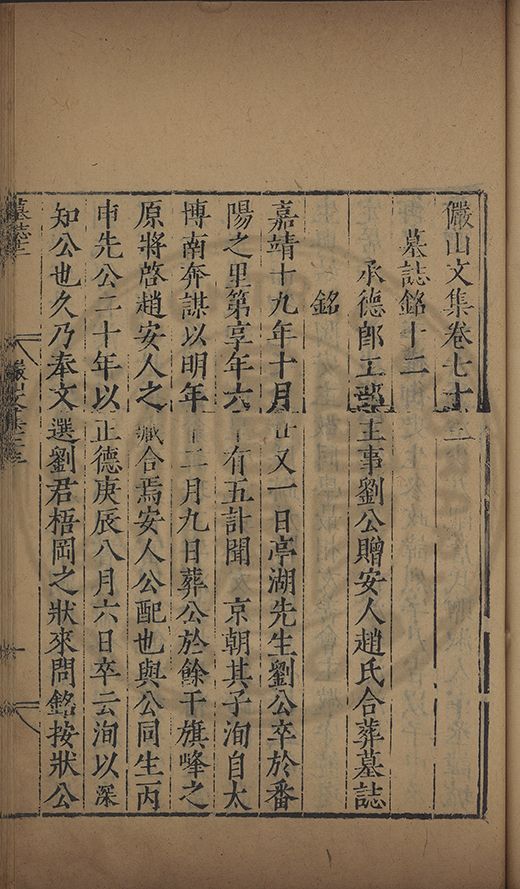 儼山文集卷七十三
墓誌銘十二
承德郎工部主事劉公贈安人趙氏合葬墓誌
銘
嘉靖十九年十月廿又一日亭湖先生劉公卒於番
陽之里第享年六十有五計聞 京朝其子洵自太
博南奔謀以明年十二月九日葬公於餘干旗峰之
原將啓趙安人之藏合焉安人公配也與公同生丙
申先公二十年以正德庚辰八月六日卒云洵以深
知公也久乃奉文選劉君梧岡之狀來問銘按狀公